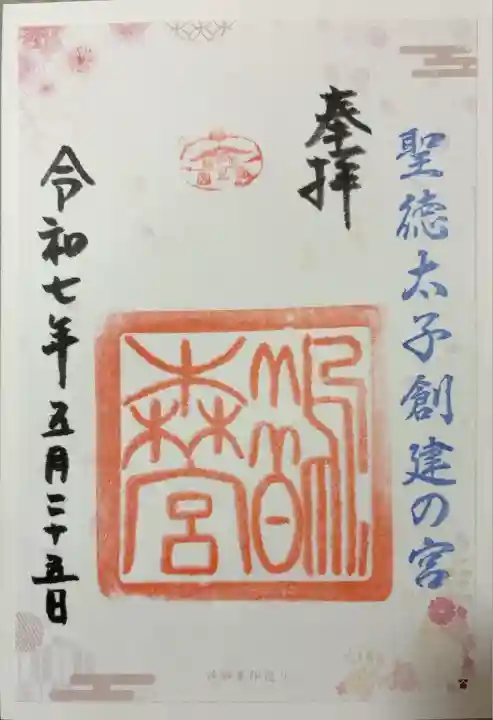 聖徳太子創建の宮
奉拝
鵲森宮
令和七年五月二十五日